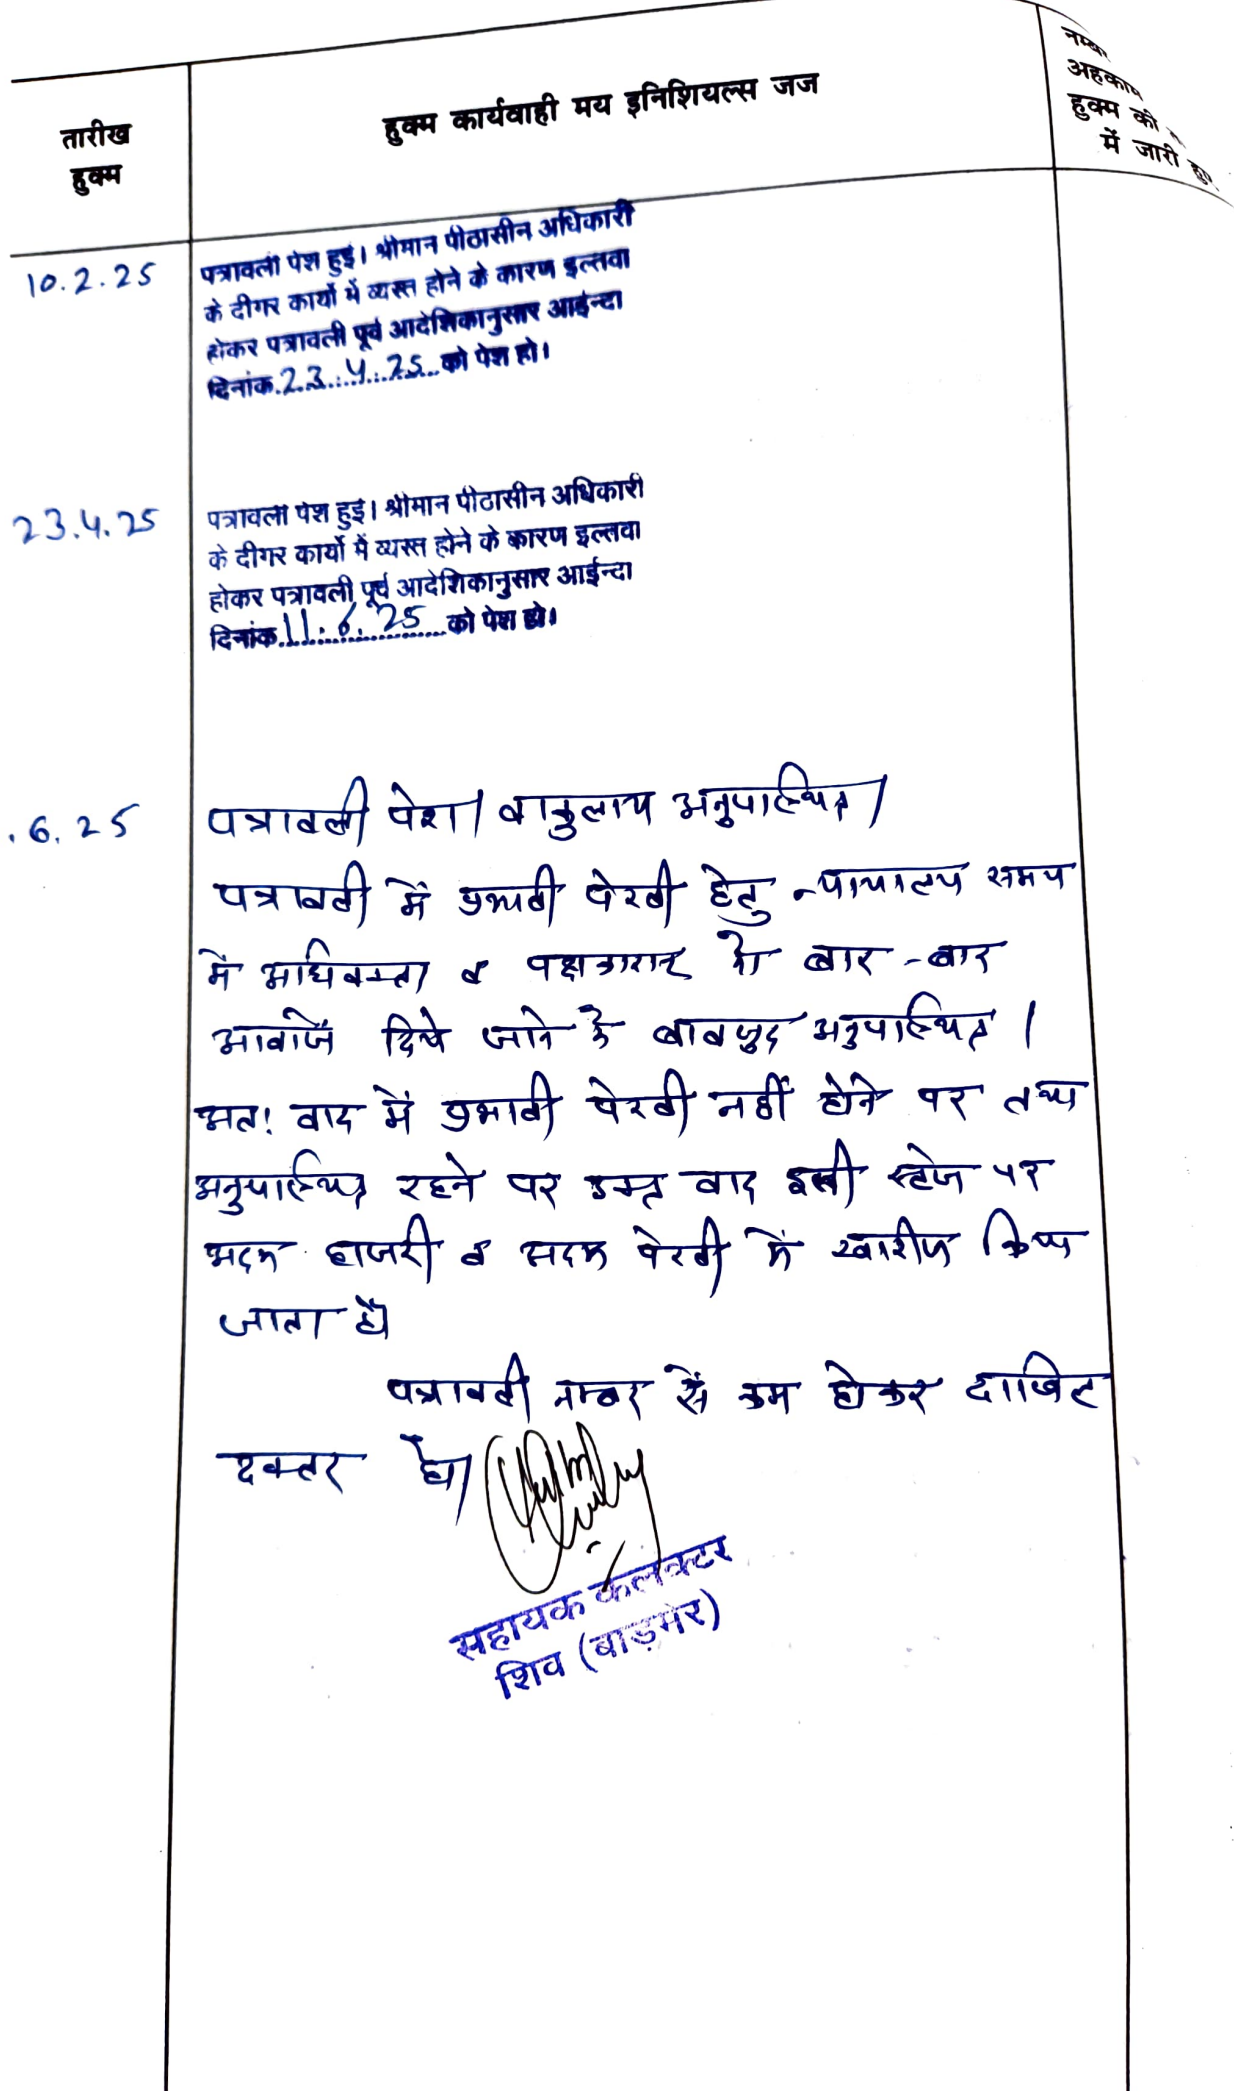 तारीख
हुक्म
हुक्म कार्यवाही मय इनिशियल्स जज
अहकाम
हुक्म की
में जारी हुए
10.2.25
पत्रावली पेश हुई। श्रीमान पीठासीन अधिकारी
के दीगर कार्यो में व्यस्त होने के कारण इल्तवा
होकर पत्रावली पूर्व आदेशिकानुसार आईन्दा
दिनांक 23.4.25 को पेश हो।
23.4.25
पत्रावली पेश हुई। श्रीमान पीठासीन अधिकारी
के दीगर कार्यो में व्यस्त होने के कारण इल्तवा
होकर पत्रावली पूर्व आदेशिकानुसार आईन्दा
दिनांक 11.6.25 को पेश हो।
.6.25
पत्रावली पेश। वाकुलाय अनुपस्थित।
पत्रावली में प्रभावी पेरवी हेतु न्यायालय समय
में अधिवक्ता व पक्षकारान को बार-बार
आवाजें दिये जाने के बावजुद अनुपस्थित।
अतः वाद में प्रभावी पेरवी नहीं होने पर तथा
अनुपस्थित रहने पर उक्त वाद इसी स्टेज पर
अदम हाजरी व अदम पेरवी में खारीज किया
जाता है
पत्रावली नम्बर से कम होकर दाखिल
दफ्तर हो।
सहायक कलक्टर
शिव (बाड़मेर)